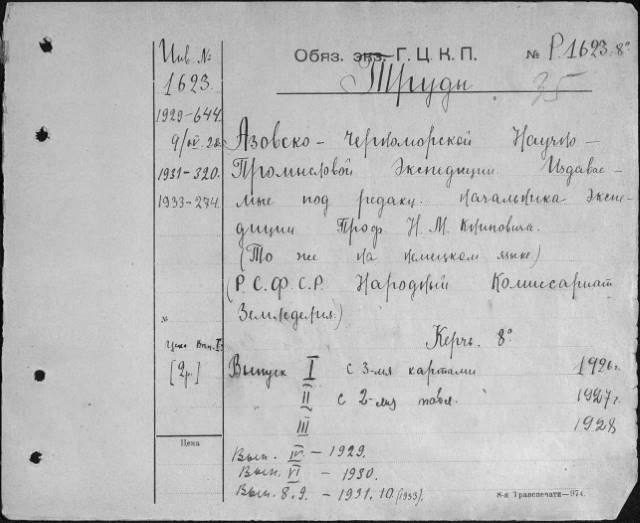 Инв. №
1623
1929-644
1931-320.
1933-274.
Обяз. экз. Г. Ц. К. П.
№ Р1623. 8°
35
Труды
Азовско - Черноморской Научно -
Промысловой Экспедиции. Издавае -
мые под редакц. начальника Экспе-
диции Проф. Н. М. Книповича.
(То же на немецком языке)
(Р. С. Ф. С. Р. Народный Комиссариат
Земледелия.)
Керчь. 8°
№
Цена Вып. I.
[2р.]
Выпуск I с 3-мя картами 1926г.
II с 2-мя табл. 1927г.
III 1928
Цена
Вып. IV - 1929.
Вып. VI - 1930.
Вып. 8. 9. - 1931. 10. (1933).
8-я Транспечати—974.